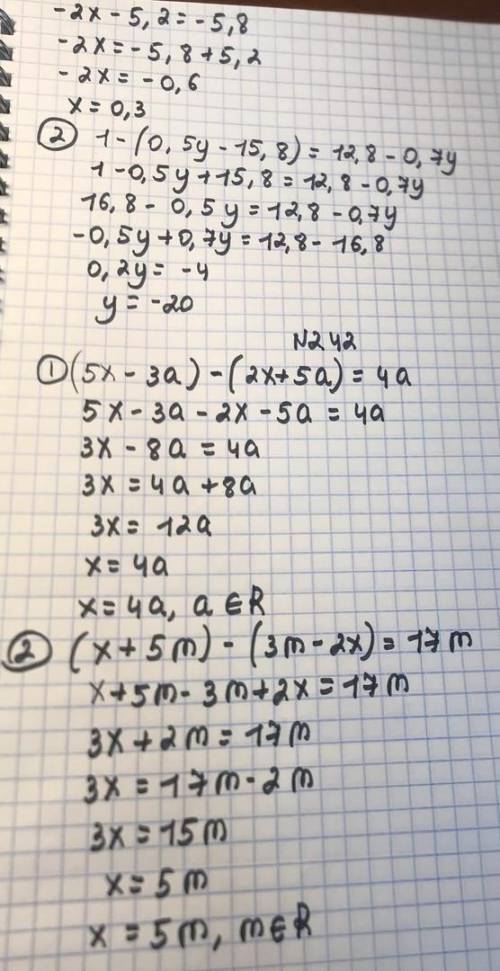 -2x-5,2=-5,8
-2x=-5,8+5,2
-2x=-0,6
x=0,3
② 1-(0,5y-15,8)=12,8-0,7y
1-0,5y+15,8=12,8-0,7y
16,8-0,5y=12,8-0,7y
-0,5y+0,7y=12,8-16,8
0,2y=-4
y=-20
N242
① (5x-3a)-(2x+5a)=4a
5x-3a-2x-5a=4a
3x-8a=4a
3x=4a+8a
3x=12a
x=4a
x=4a, a∈R
② (x+5m)-(3m-2x)=17m
x+5m-3m+2x=17m
3x+2m=17m
3x=17m-2m
3x=15m
x=5m
x=5m, m∈R